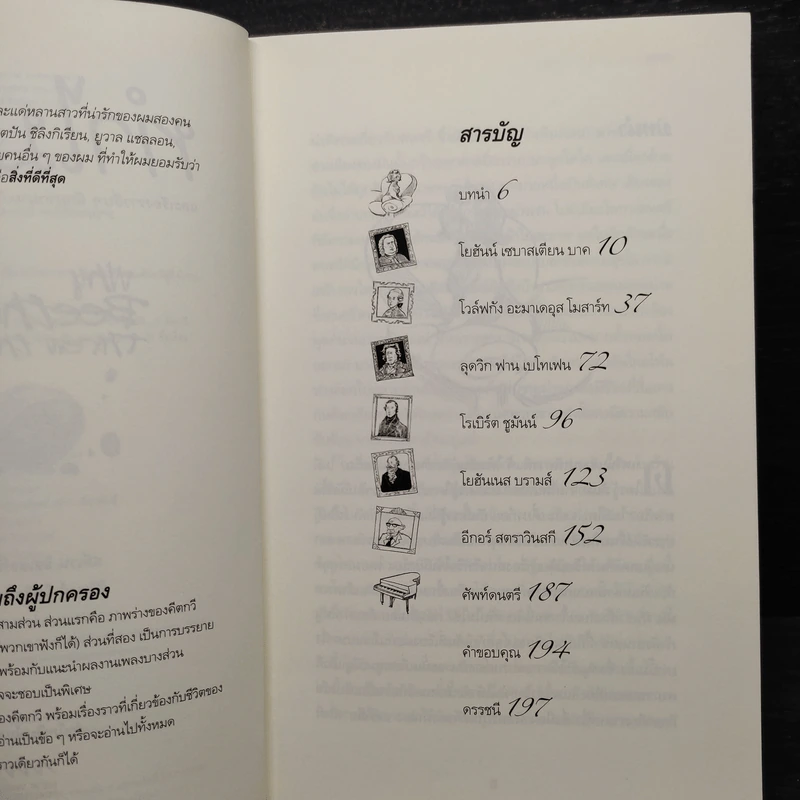 หลานสาวที่น่ารักของผมสองคน
ซิลิงกิเรียน, ยูวาล แชลลอน,
คนอื่น ๆ ของผม ที่ทำให้ผมยอมรับว่า
สิ่งที่ดีที่สุด
ถึงผู้ปกครอง
สามส่วน ส่วนแรกคือ ภาพร่างของคีตกวี
พวกเขาฟังก็ได้) ส่วนที่สอง เป็นการบรรยาย
พร้อมกับแนะนำผลงานเพลงบางส่วน
จะชอบเป็นพิเศษ
คีตกวี พร้อมเรื่องราวที่เกี่ยวข้องกับชีวิตของ
อ่านเป็นข้อ ๆ หรือจะอ่านไปทั้งหมด
ราวเดียวกันก็ได้
สารบัญ
บทนำ 6
โยฮันน์ เซบาสเตียน บาค 10
โวล์ฟกัง อะมาเดอุส โมสาร์ท 37
ลุดวิก ฟาน เบโทเฟน 72
โรเบิร์ต ชูมันน์ 96
โยฮันเนส บรามส์ 123
อีกอร์ สตราวินสกี 152
ศัพท์ดนตรี 187
คำขอบคุณ 194
ดรรชนี 197